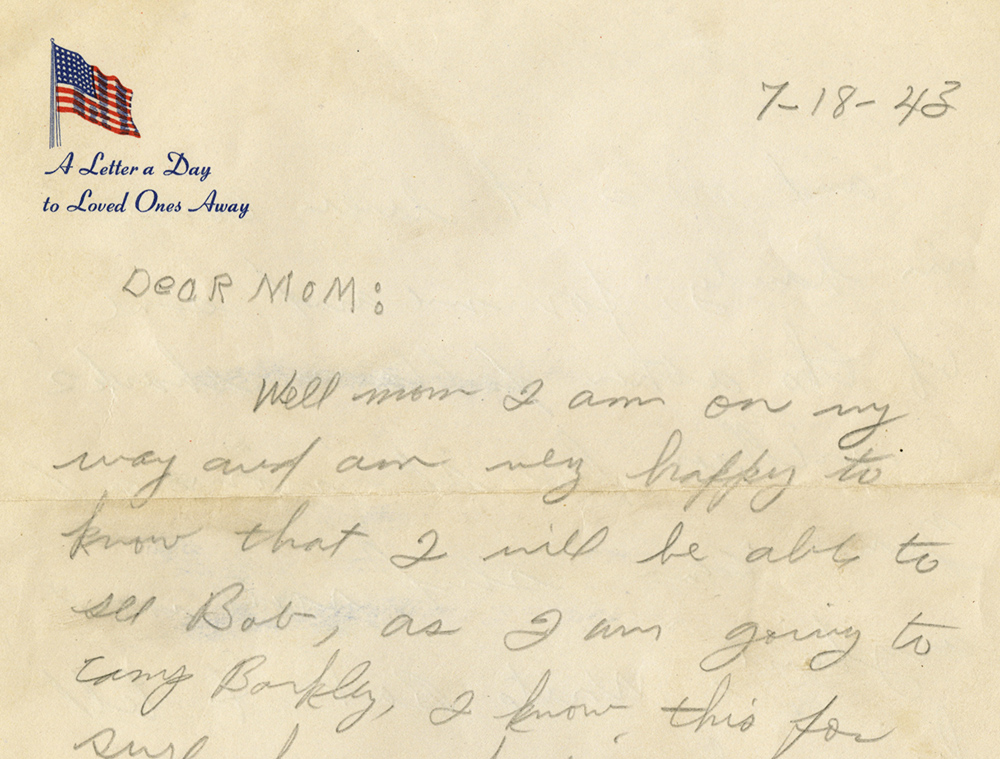 7-18-43
A Letter a Day
to Loved Ones Away
Dear Mom:
Well mom I am on my
way and am very happy to
know that I will be able to
see Bob, as I am going to
camp Barkley, I know this for
sure